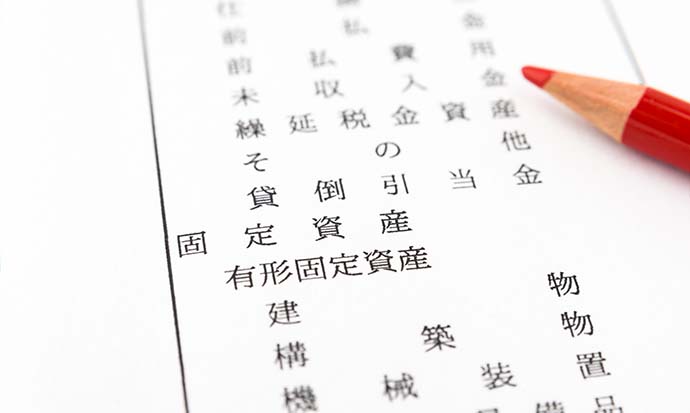 前払金
前払費用
未収入金
繰延税金資産
その他
貸倒引当金
固定資産
有形固定資産
建物
構築物
機械装置
備品